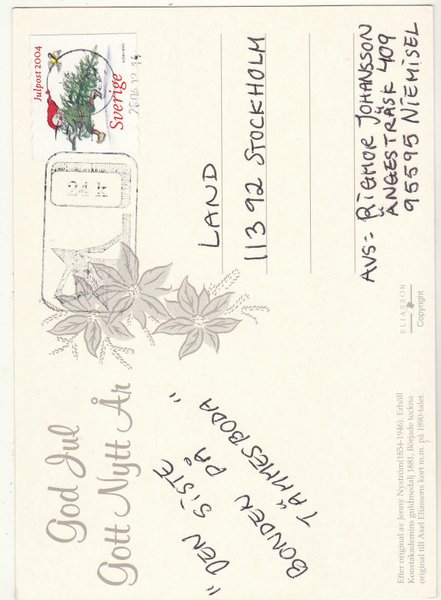 God Jul
Gott Nytt År
"DEN SISTE
BONDEN PÅ
TÄMMESBODA"
Efter original av Jenny Nyström(1854-1946). Erhöll
Konstakademins guldmedalj 1881. Började teckna
original till Axel Eliassons kort m.m. på 1890-talet.
ELIASSON
Copyright
Julpost 2004
Sverige
24 k
LAND
113 92 STOCKHOLM
AVS:- RIGMOR JOHANSSON
ÄNGESTRÄSK 409
95595 NIEMISEL